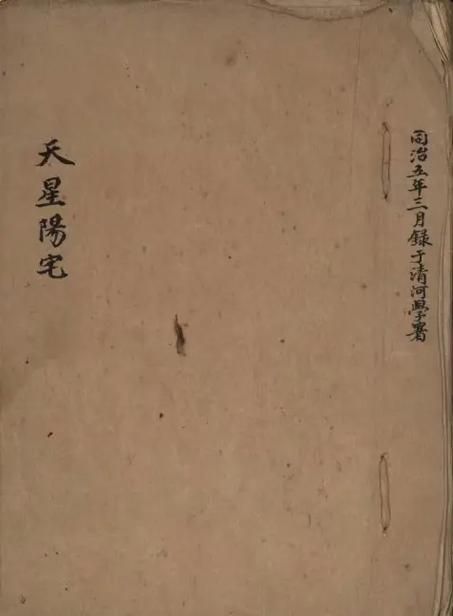 同治五年三月錄于清河學署
天星陽宅